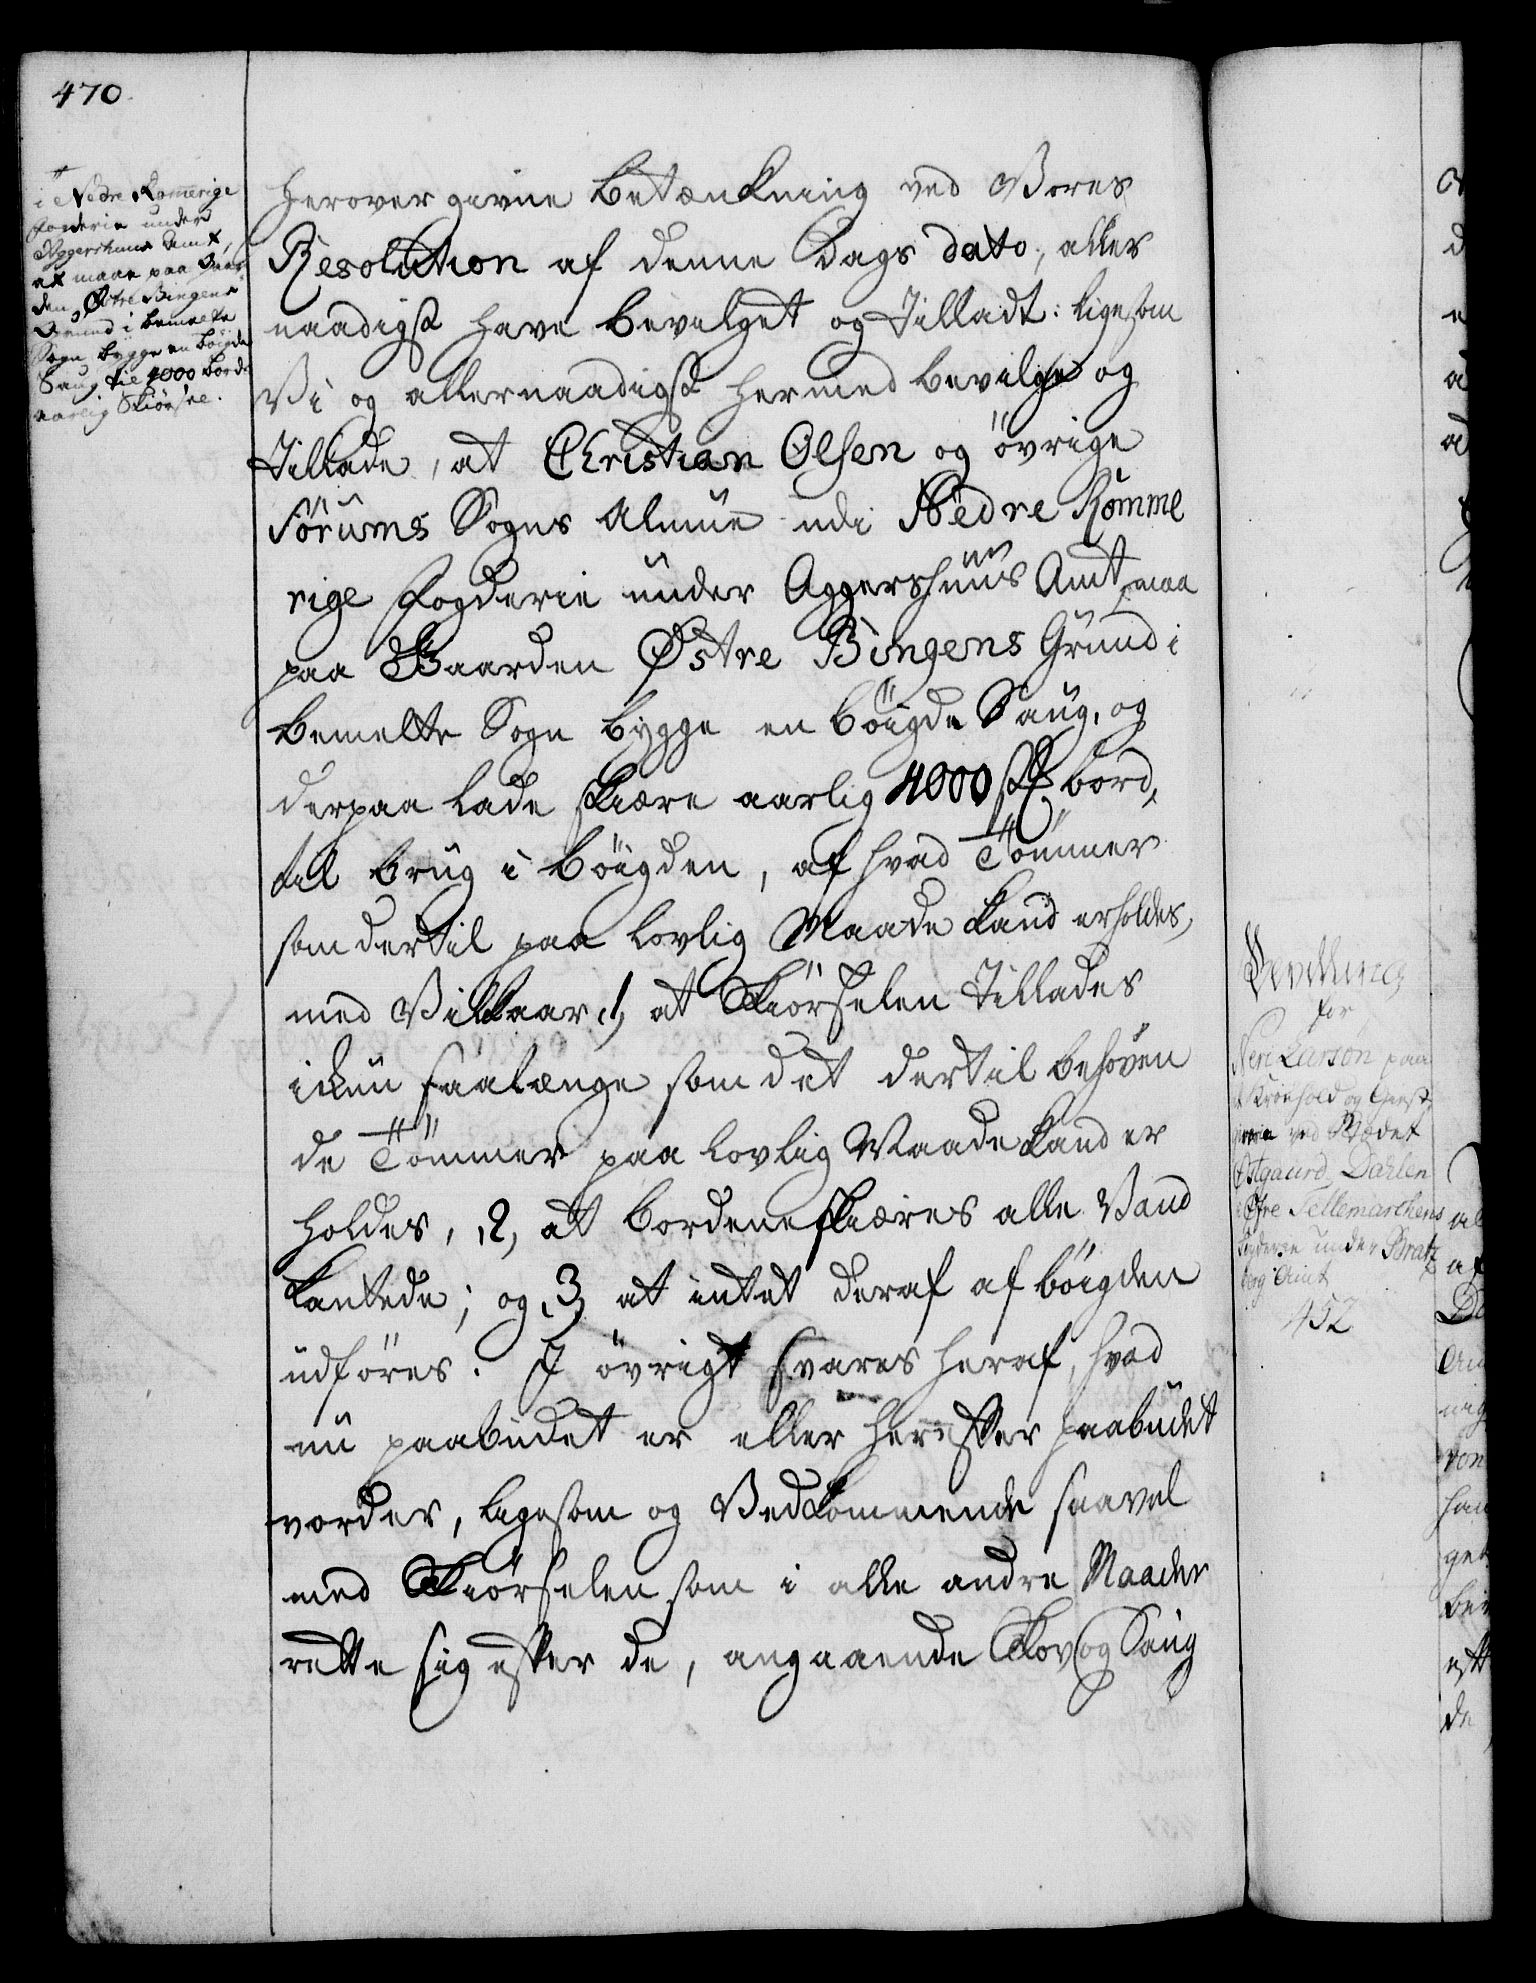 470.
i Nedre Romerige
Fogderie under
Aggershuus Amt,
at maae paa Gaar-
den Østre Bingens
Grund i bemelte
Sogn bygge en böigde
Saug til 4000 Bords
aarlig Skiörsel.
herover givne Betænkning ved Vores
Resolution af denne Dags dato, aller
naadigst have bevilget og Tilladt: ligesom
Vi og allernaadigst hermed bevilge og
Tillade, at Christian Olsen og övrige
Sörums Sogns Almue udi Nedre Romme
rige Fogderie under Aggershuus Amt, maa
paa Gaarden Østre Bingens Grund i
bemelte Sogn bygge en böigde Saug, og
derpaa lade skiære aarlig 4000 st bord,
til brug i böigden, af hvad Tömmer
som dertil paa lovlig Maade kand erholdes,
med Vilkaar, 1, at Skiörselen Tillades
ickun saalænge som det dertil behöven
de Tömmer paa lovlig Maade kand er
holdes, 2, at bordene skiæres alle Vand
kantede; og 3, at intet deraf af böigden
udföres. I övrigt svares heraf, hvad
nu paabudet er eller herefter paabudet
vorder, ligesom og Vedkommende saavel
med Skiörselen som i alle andre Maader
rette sig efter de, angaaende Skov og Saug
Bevilling
for
Neri Larson paa
Kroehold og Giest-
giverie ved Stædet
Østgaard Dahlen
i Øfre Tellemarchens
Fogderie under Bratz
berg Amt
452